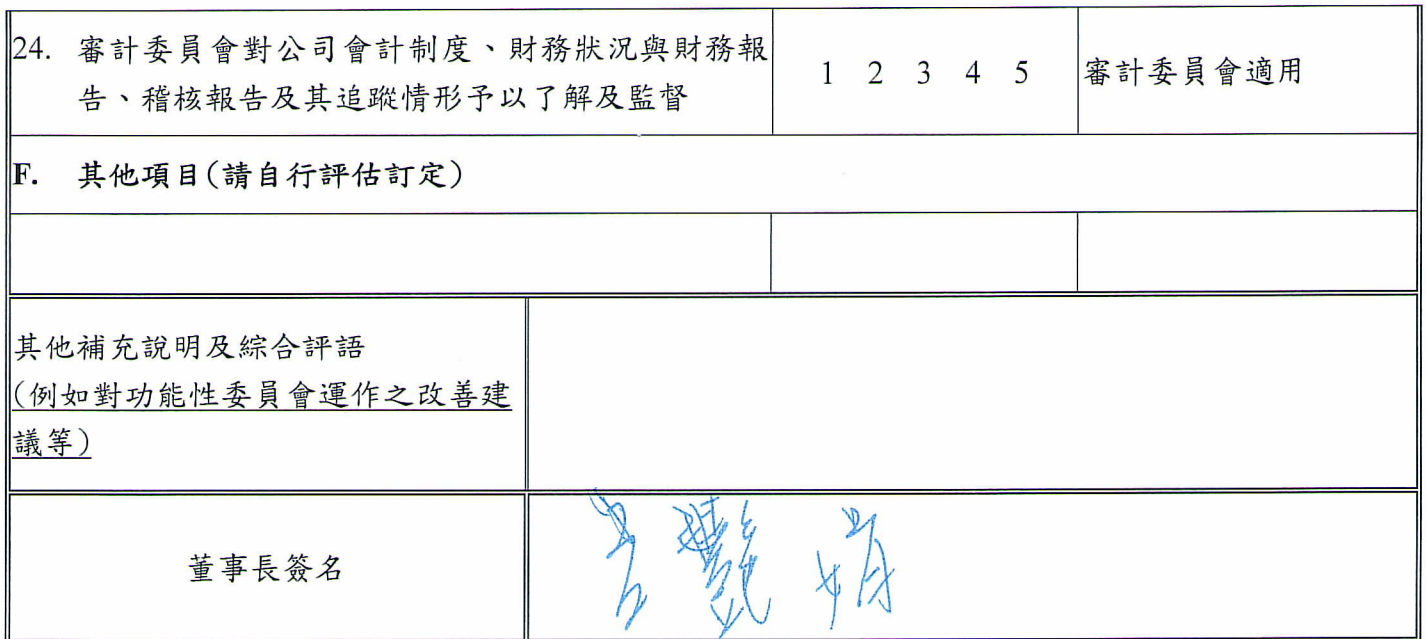 24. 審計委員會對公司會計制度、財務狀況與財務報
告、稽核報告及其追蹤情形予以了解及監督
1 2 3 4 5
審計委員會適用
F. 其他項目(請自行評估訂定)
其他補充說明及綜合評語
(例如對功能性委員會運作之改善建
議等)
董事長簽名